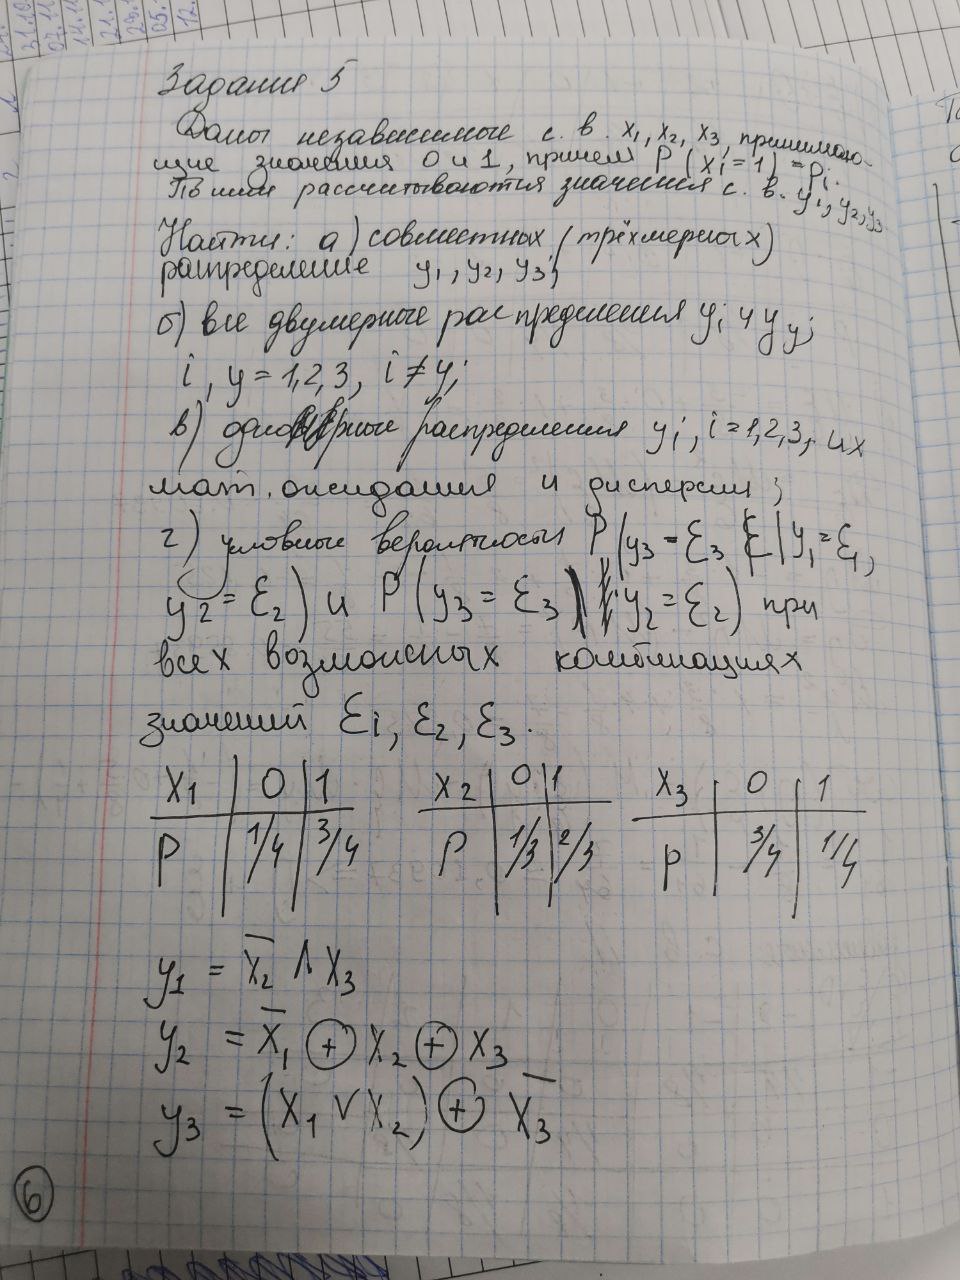 Задания 5
Даны независимые с. в. x₁, x₂, x₃, принимаю-
щие значения 0 и 1, причем P(xi = 1) = pi.
По ним рассчитываются значения с. в. y₁, y₂, y₃
Найти: а) совместных (трёхмерных)
распределение y₁, y₂, y₃;
б) все двумерные распределения yi и yy;
i, y = 1,2,3, i ≠ y;
в) одномерные распределения yi, i = 1,2,3, их
мат. ожидания и дисперсии;
г) условные вероятности P(y₃ = ε₃ | y₁ = ε₁,
y₂ = ε₂) и P(y₃ = ε₃ | y₂ = ε₂) при
всех возможных комбинациях
значений ε₁, ε₂, ε₃.
x₁ 0 1 x₂ 0 1 x₃ 0 1
P 1/4 3/4 P 1/3 2/3 P 3/4 1/4
y₁ = x̅₂ ∧ x₃
y₂ = x̅₁ ⊕ x₂ ⊕ x₃
y₃ = (x₁ ∨ x₂) ⊕ x̅₃
6